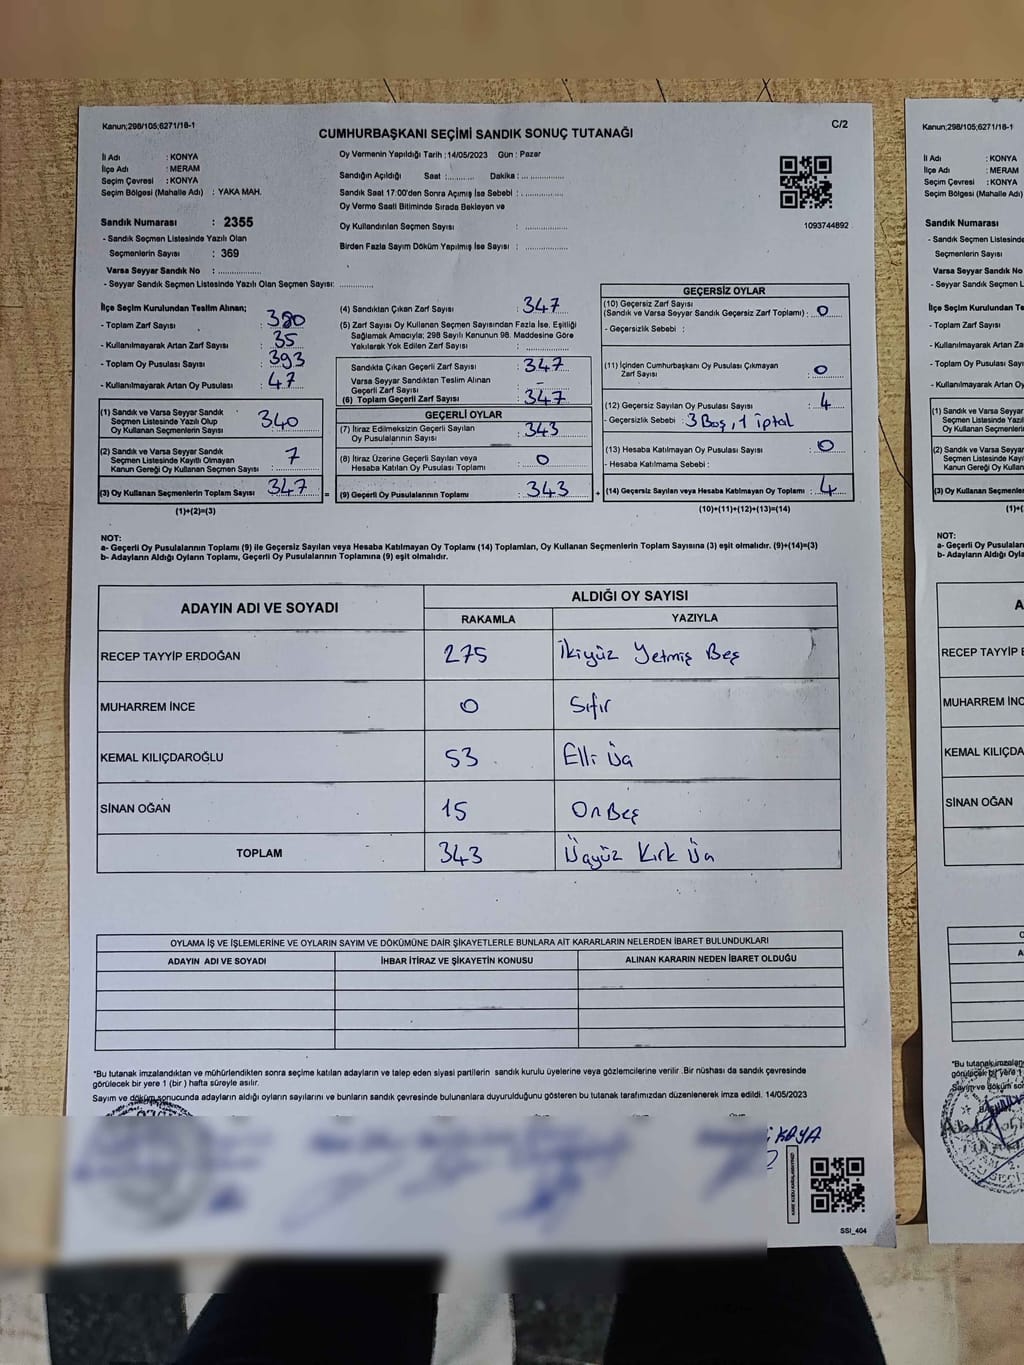 Kanun;298/105;6271/18-1
CUMHURBAŞKANI SEÇİMİ SANDIK SONUÇ TUTANAĞI
C/2
İl Adı : KONYA
İlçe Adı : MERAM
Seçim Çevresi : KONYA
Seçim Bölgesi (Mahalle Adı) : YAKA MAH.
Sandık Numarası : 2355
- Sandık Seçmen Listesinde Yazılı Olan
Seçmenlerin Sayısı : 369
Varsa Seyyar Sandık No : ....................
- Seyyar Sandık Seçmen Listesinde Yazılı Olan Seçmen Sayısı: ..............
Oy Vermenin Yapıldığı Tarih : 14/05/2023 Gün : Pazar
Sandığın Açıldığı Saat :......... Dakika :... ..............
Sandık Saat 17:00'den Sonra Açımış İse Sebebi : . ..............
Oy Verme Saati Bitiminde Sırada Bekleyen ve
Oy Kullandırılan Seçmen Sayısı : ..............
Birden Fazla Sayım Döküm Yapılmış İse Sayısı : ..............
1093744892
İlçe Seçim Kurulundan Teslim Alınan;
- Toplam Zarf Sayısı : 380
- Kullanılmayarak Artan Zarf Sayısı : 35
- Toplam Oy Pusulası Sayısı : 393
- Kullanılmayarak Artan Oy Pusulası : 47
(1) Sandık ve Varsa Seyyar Sandık
Seçmen Listesinde Yazılı Olup
Oy Kullanan Seçmenlerin Sayısı 340
(2) Sandık ve Varsa Seyyar Sandık
Seçmen Listesinde Kayıtlı Olmayan
Kanun Gereği Oy Kullanan Seçmen Sayısı 7
(3) Oy Kullanan Seçmenlerin Toplam Sayısı 347
(1)+(2)=(3)
(4) Sandıktan Çıkan Zarf Sayısı : 347
(5) Zarf Sayısı Oy Kullanan Seçmen Sayısından Fazla İse, Eşitliği
Sağlamak Amacıyla; 298 Sayılı Kanunun 98. Maddesine Göre
Yakılarak Yok Edilen Zarf Sayısı : ..............
Sandıkta Çıkan Geçerli Zarf Sayısı : 347
Varsa Seyyar Sandıktan Teslim Alınan
Geçerli Zarf Sayısı : -
(6) Toplam Geçerli Zarf Sayısı : 347
=
GEÇERLİ OYLAR
(7) İtiraz Edilmeksizin Geçerli Sayılan
Oy Pusulalarının Sayısı : 343
(8) İtiraz Üzerine Geçerli Sayılan veya
Hesaba Katılan Oy Pusulası Toplamı : 0
(9) Geçerli Oy Pusulalarının Toplamı : 343
+
GEÇERSİZ OYLAR
(10) Geçersiz Zarf Sayısı
(Sandık ve Varsa Seyyar Sandık Geçersiz Zarf Toplamı) : 0
- Geçersizlik Sebebi :
(11) İçinden Cumhurbaşkanı Oy Pusulası Çıkmayan
Zarf Sayısı : 0
(12) Geçersiz Sayılan Oy Pusulası Sayısı : 4
- Geçersizlik Sebebi : 3 Boş, 1 iptal
(13) Hesaba Katılmayan Oy Pusulası Sayısı : 0
- Hesaba Katılmama Sebebi :
(14) Geçersiz Sayılan veya Hesaba Katılmayan Oy Toplamı : 4
(10)+(11)+(12)+(13)=(14)
NOT:
a- Geçerli Oy Pusulalarının Toplamı (9) ile Geçersiz Sayılan veya Hesaba Katılmayan Oy Toplamı (14) Toplamları, Oy Kullanan Seçmenlerin Toplam Sayısına (3) eşit olmalıdır. (9)+(14)=(3)
b- Adayların Aldığı Oyların Toplamı, Geçerli Oy Pusulalarının Toplamına (9) eşit olmalıdır.
ADAYIN ADI VE SOYADI
ALDIĞI OY SAYISI
RAKAMLA YAZIYLA
RECEP TAYYİP ERDOĞAN 275 İkiyüz Yetmiş Beş
MUHARREM İNCE 0 Sıfır
KEMAL KILIÇDAROĞLU 53 Elli Üç
SİNAN OĞAN 15 OnBeş
TOPLAM 343 Üçyüz Kırk Üç
OYLAMA İŞ VE İŞLEMLERİNE VE OYLARIN SAYIM VE DÖKÜMÜNE DAİR ŞİKAYETLERLE BUNLARA AİT KARARLARIN NELERDEN İBARET BULUNDUKLARI
ADAYIN ADI VE SOYADI İHBAR İTİRAZ VE ŞİKAYETİN KONUSU ALINAN KARARIN NEDEN İBARET OLDUĞU
*Bu tutanak imzalandıktan ve mühürlendikten sonra seçime katılan adayların ve talep eden siyasi partilerin sandık kurulu üyelerine veya gözlemcilerine verilir .Bir nüshası da sandık çevresinde
görülecek bir yere 1 (bir ) hafta süreyle asılır.
Sayım ve döküm sonucunda adayların aldığı oyların sayılarını ve bunların sandık çevresinde bulunanlara duyurulduğunu gösteren bu tutanak tarafımızdan düzenlenerek imza edildi. 14/05/2023
KAYA
SSI_404
Kanun;298/105;6271/18-1
İl Adı : KONYA
İlçe Adı : MERAM
Seçim Çevresi : KONYA
Seçim Bölgesi (Mahalle Adı)
Sandık Numarası
- Sandık Seçmen Listesinde
Seçmenlerin Sayısı
Varsa Seyyar Sandık No
- Seyyar Sandık Seçmen Lis
İlçe Seçim Kurulundan Tes
- Toplam Zarf Sayısı
- Kullanılmayarak Artan Za
- Toplam Oy Pusulası Sayıs
- Kullanılmayarak Artan Oy
(1) Sandık ve Varsa Seyyar
Seçmen Listesinde Yazıl
Oy Kullanan Seçmenlerin
(2) Sandık ve Varsa Seyyar
Seçmen Listesinde Kayıt
Kanun Gereği Oy Kullan
(3) Oy Kullanan Seçmenle
(1)+(
NOT:
a- Geçerli Oy Pusuların
b- Adayların Aldığı Oyla
A
RECEP TAYYİP E
MUHARREM İNC
KEMAL KILIÇDA
SİNAN OĞAN
*Bu tutanak imzalan
görülecek bir yere 1
Sayım ve döküm so